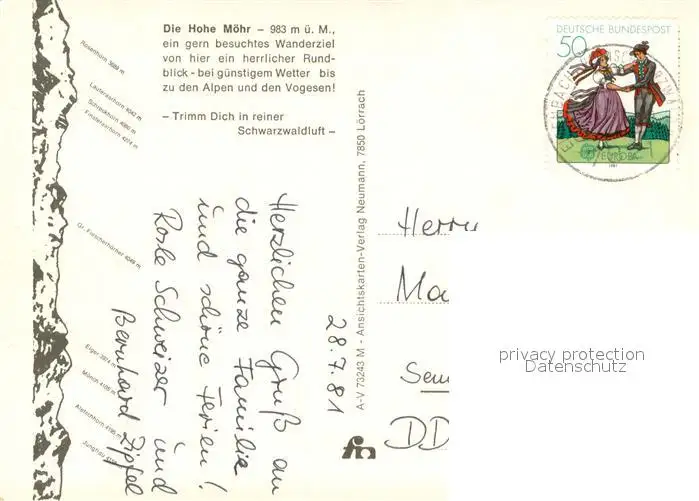 Die Hohe Möhr – 983 m ü. M.,
ein gern besuchtes Wanderziel
von hier ein herrlicher Rund-
blick - bei günstigem Wetter bis
zu den Alpen und den Vogesen!
– Trimm Dich in reiner
Schwarzwaldluft –
DEUTSCHE BUNDESPOST
50
EUROPA
1981
Lauteraarhorn 4042 m
Schreckhorn 4080 m
Finsteraarhorn 4274 m
Gr. Fiescherhörner 4049 m
Eiger 3974 m
Mönch 4105 m
Aletschhorn 4195 m
Jungfrau
28.7.81
Herzlichen Gruß an
die ganze Familie
und schöne Ferien!
Rosle Schweizer und
Bernhard Zipfel
A-V 73243 M - Ansichtskarten-Verlag Neumann, 7850 Lörrach
Herrn
Ma
Sem
DD
privacy protection
Datenschutz